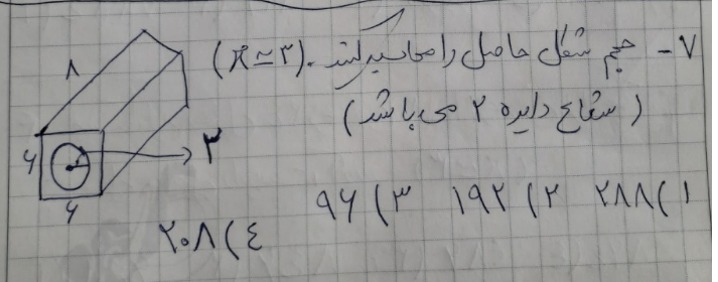 ۷- حجم شکل حاصل را محاسبه کنید. (π≃۳)
(شعاع دایره ۲ می باشد)
۸
۶
۶
۲
۱) ۲۸۸ ۲) ۱۹۲ ۳) ۹۶
۴) ۲۰۸